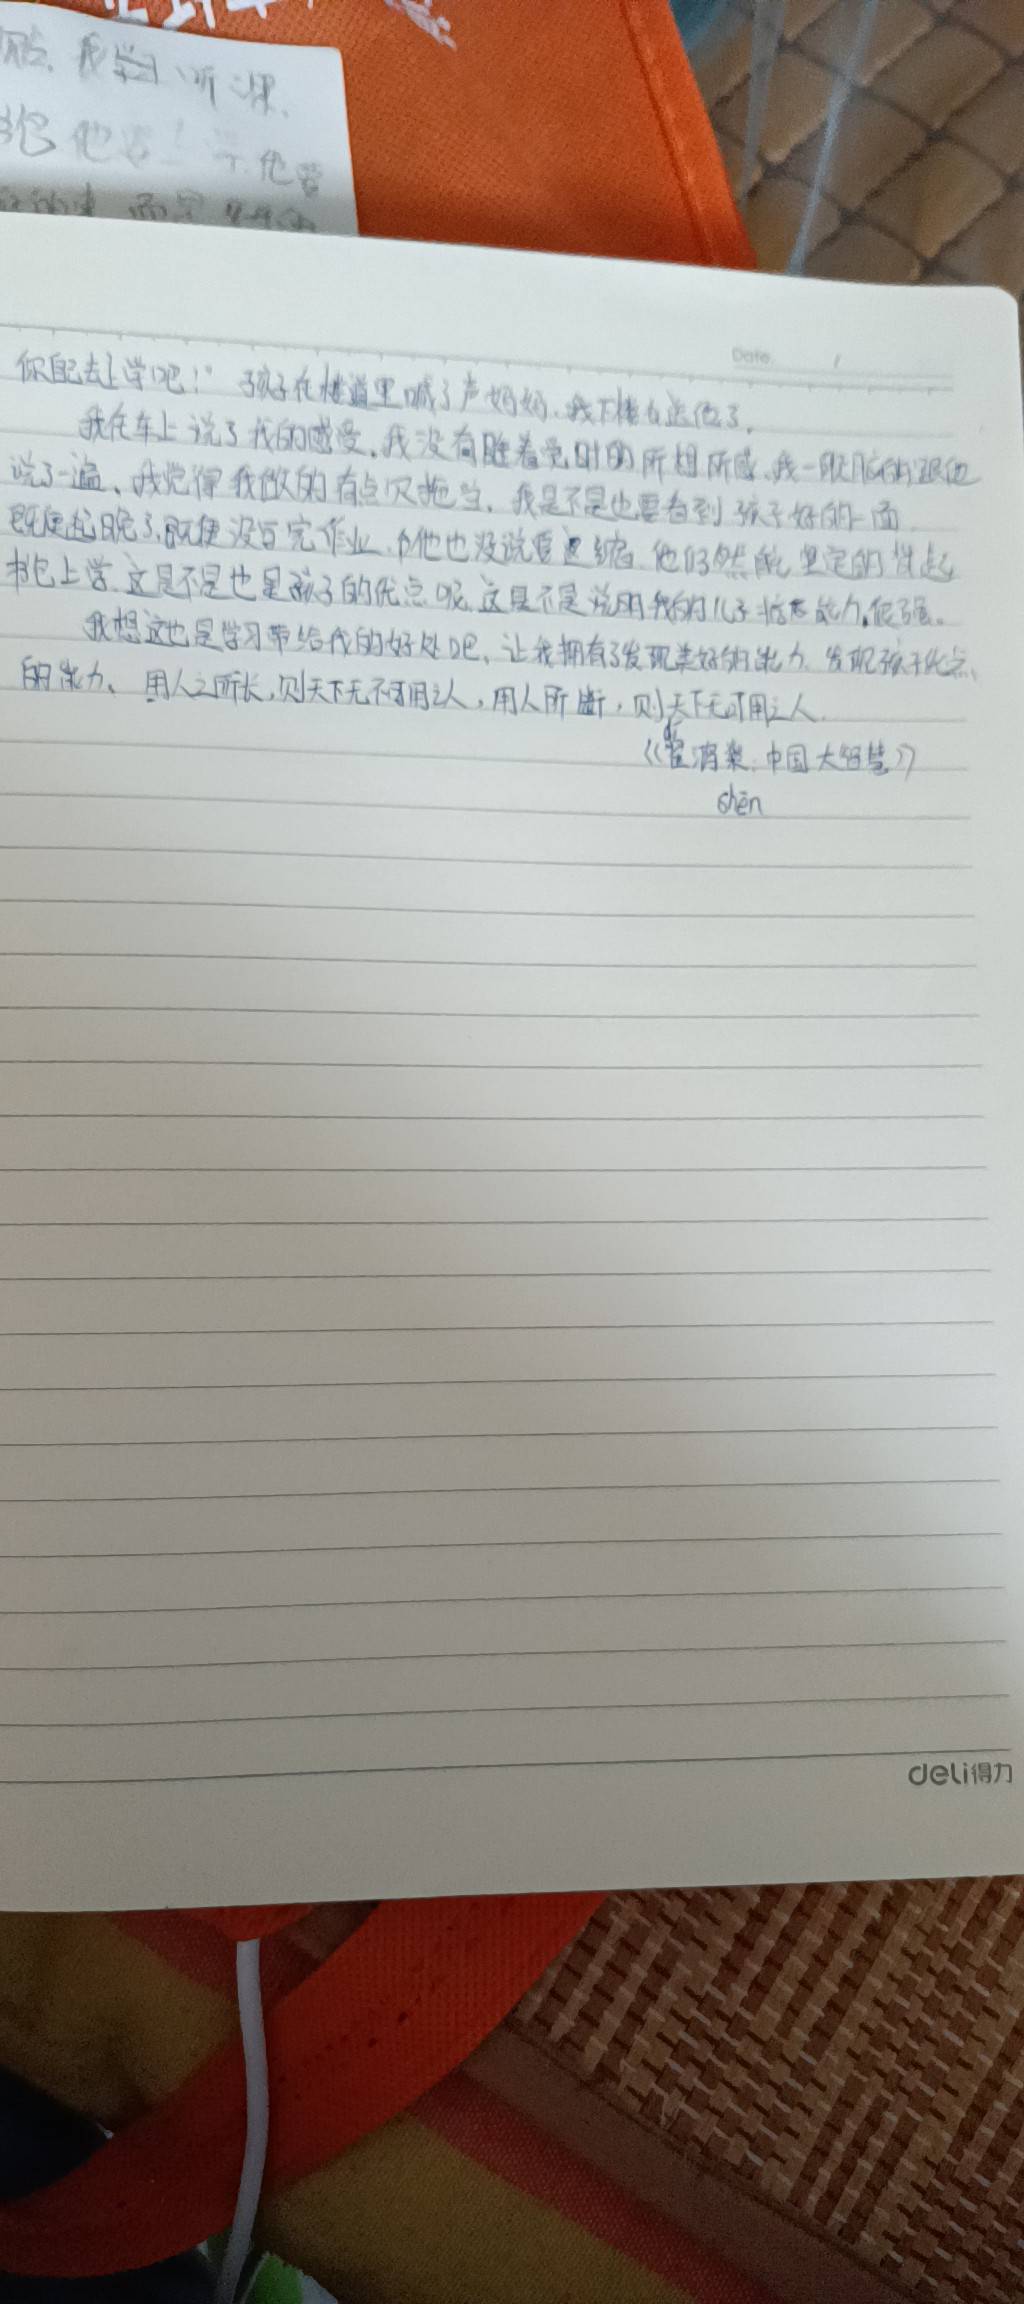 我学习、听课、
他
Date. /
你自己去上学吧！" 孩子在楼道里喊了声妈妈、我下楼去送他了。
我在车上说了我的感受、我没有睡着觉时的所想所感、我一股脑的跟他
说了一遍、我觉得我做的有点欠拖当、我是不是也要看到孩子好的一面
既使起晚了、既使没写完作业、他也没说要退缩、他仍然能坚定的背起
书包上学、这是不是也是孩子的优点呢、这是不是说明我的儿子 能力很强。
我想这也是学习带给我的好处吧、让我拥有了发现美好的能力、发现孩子优点、
的能力、用人之所长，则天下无不可用之人，用人所断，则天下无可用之人
《翟鸿燊·中国大智慧》
shēn
deli得力